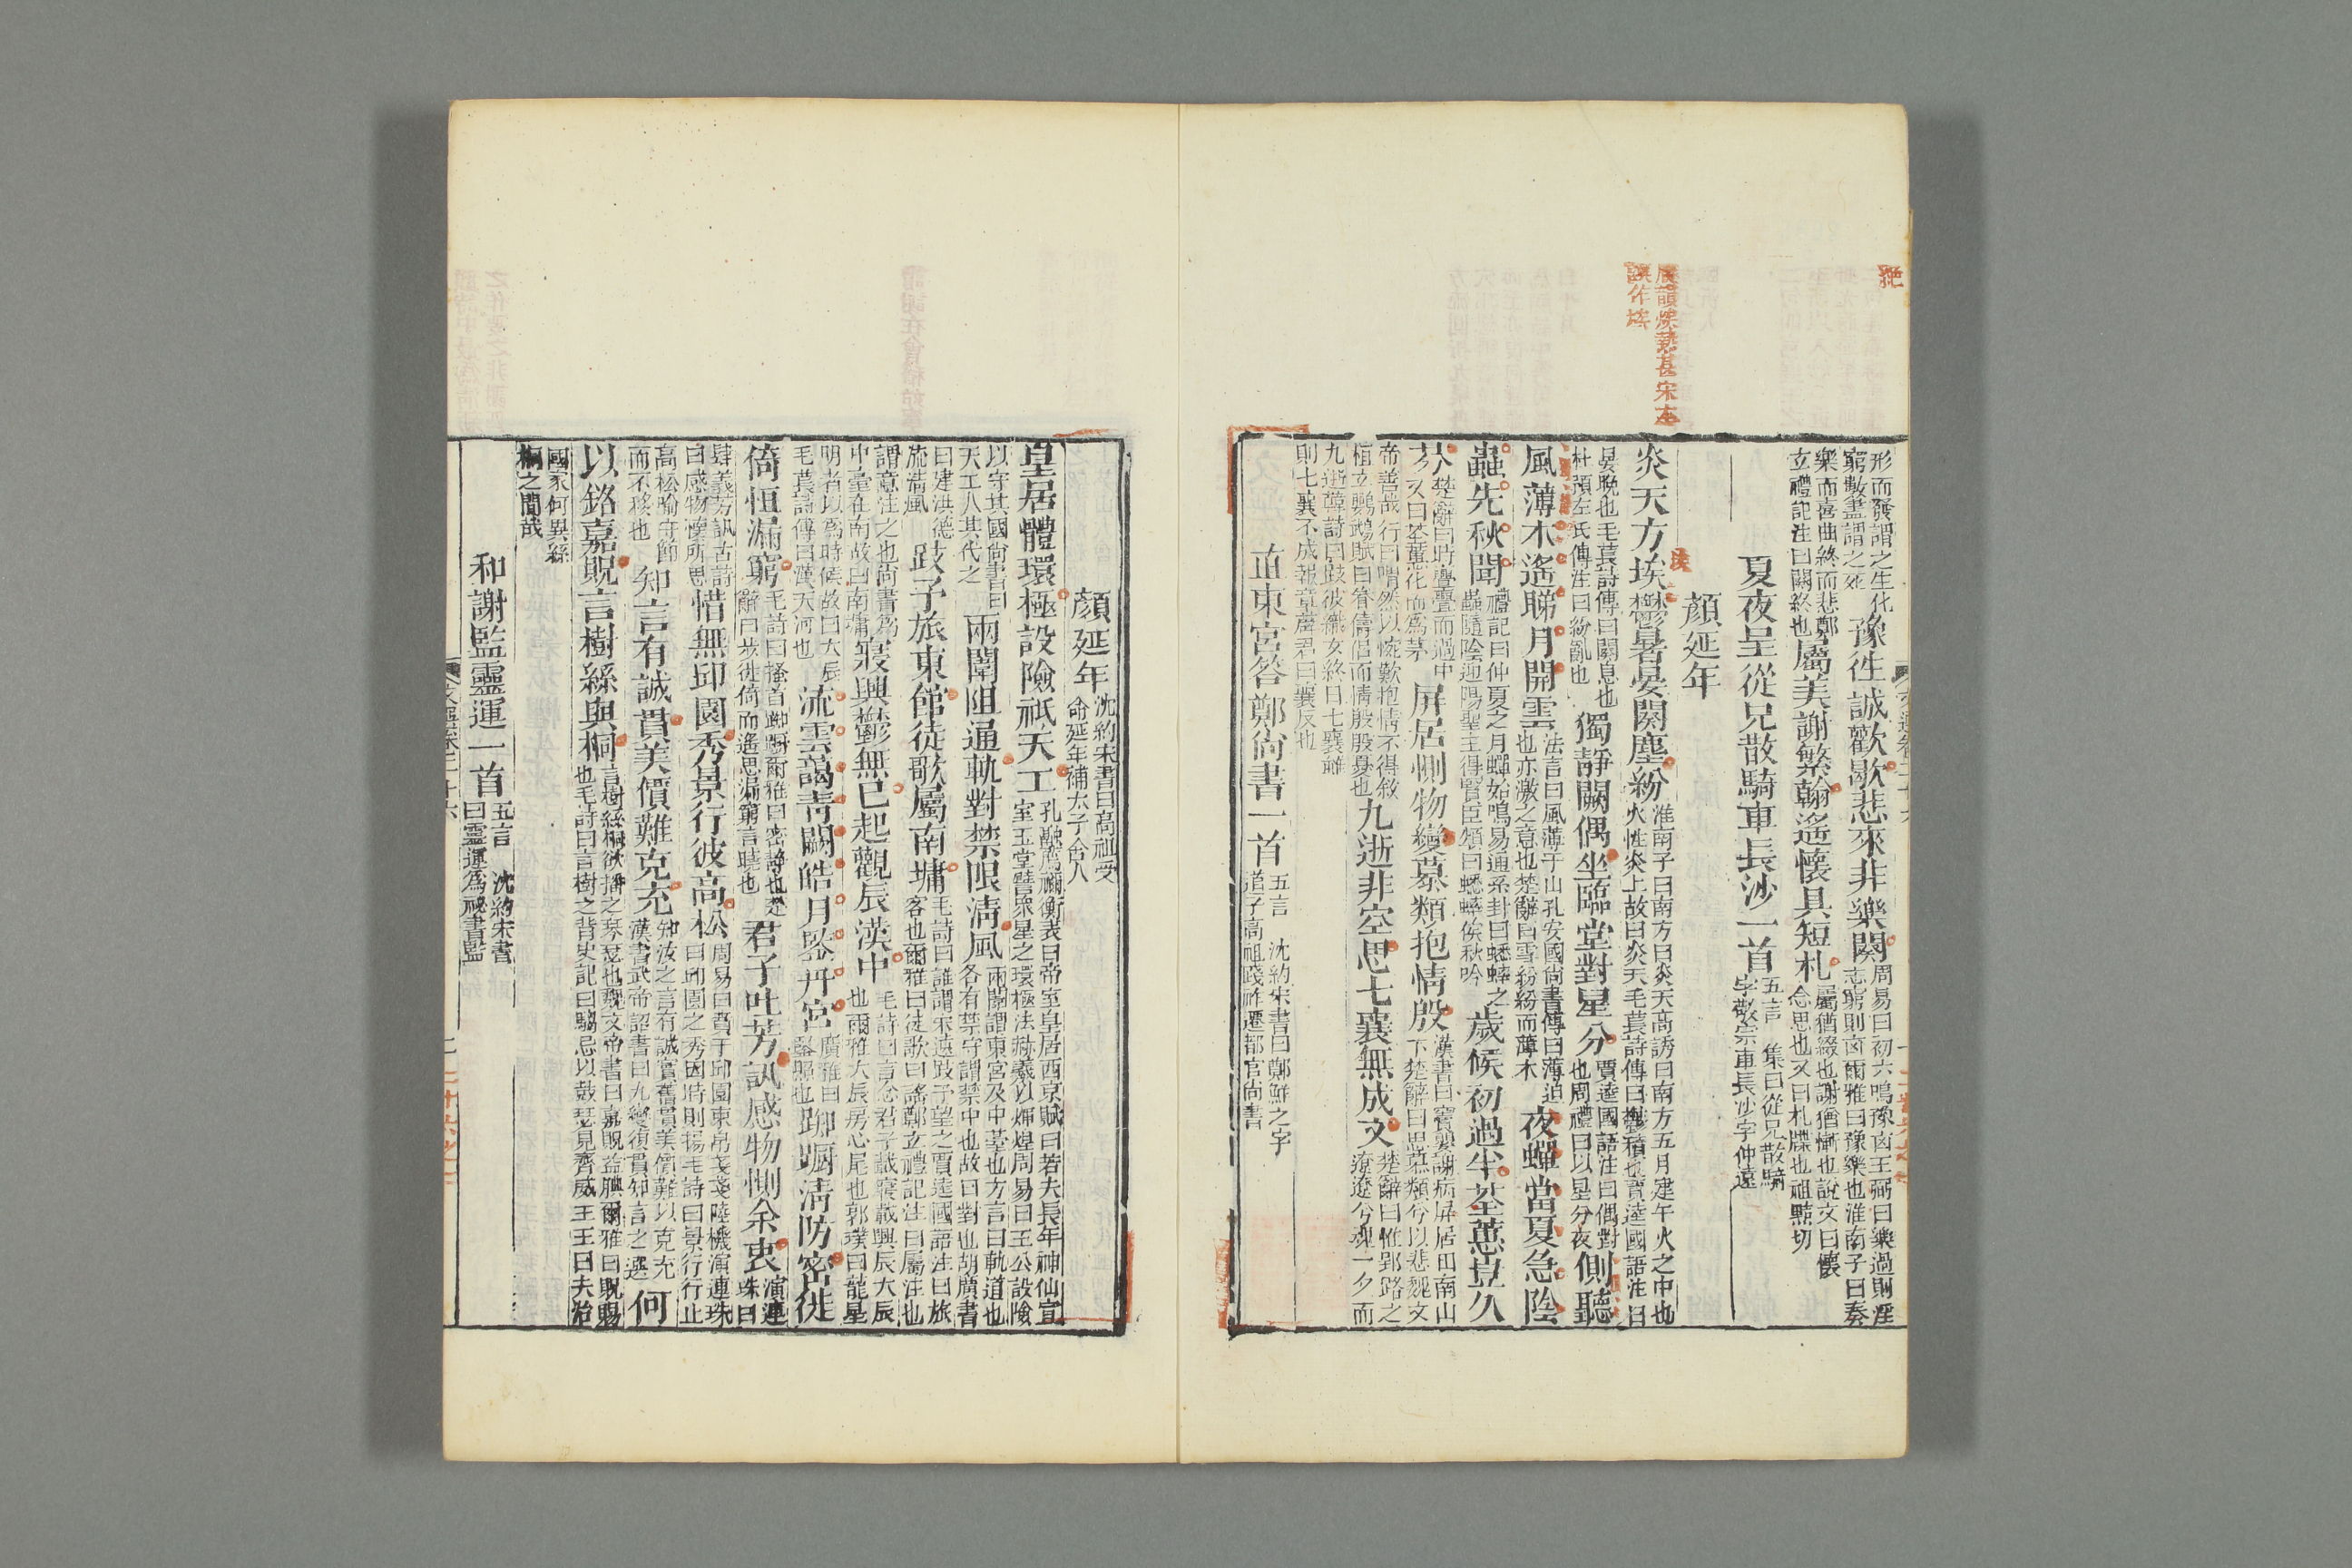 形而發謂之生化
窮數盡謂之死
豫徃誠歡歇悲來非樂闋
周易曰初六鳴豫凶王弼曰樂過則淫
志窮則凶爾雅曰豫樂也淮南子曰奏
樂而喜曲終而悲鄭
立禮記注曰闋終也
屬美謝繁翰遙懷具短札
屬猶綴也謝猶慚也說文曰懷
念思也又曰札牒也祖黠切
夏夜呈從兄散騎車長沙一首
五言 集曰從兄散騎
字敬宗車長沙字仲遠
顏延年
炎天方埃鬱暑晏闋塵紛
淮南子曰南方曰炎天高誘曰南方五月建午火之中也
火性炎上故曰炎天毛萇詩傳曰鬱積也賈逵國語注曰
晏晚也毛萇詩傳曰闋息也
杜預左氏傳注曰紛亂也
獨靜闕偶坐臨堂對星分
賈逵國語注曰偶對
也周禮曰以星分夜
側聽
風薄木遙睇月開雲
法言曰風薄于山孔安國尚書傳曰薄迫
也亦激之意也楚辭曰雪紛紛而薄木
夜蟬當夏急陰
蟲先秋聞
禮記曰仲夏之月蟬始鳴易通系卦曰蟋蟀之
蟲隨陰迎陽聖主得賢臣頌曰蟋蟀俟秋吟
歲候初過半荃蕙豈久
芬
楚辭曰時亹亹而過中
又曰荃蕙化而爲茅
屏居惻物變慕類抱情殷
漢書曰竇嬰謝病屏居田南山
下楚辭曰思慕類兮以悲魏文
帝善哉行曰喟然以惋歎抱情不得敘
植立鸚鵡賦曰眷儔侶而情殷殷憂也
九逝非空思七襄無成文
楚辭曰惟郢路之
遼遠兮魂一夕而
九逝韓詩曰跂彼織女終日七襄雖
則七襄不成報章薛君曰襄反也
直東宮答鄭尚書一首
五言 沈約宋書曰鄭鮮之字
道子高祖踐祚遷都官尚書
廣韻埃熱甚宋本
誤作埃
顏延年
沈約宋書曰高祖受
命延年補太子舍人
皇居體環極設險祇天工
孔融薦禰衡表曰帝室皇居西京賦曰若夫長年神仙宣
室玉堂譬衆星之環極法赫羲以煇煌周易曰王公設險
以守其國尚書曰
天工人其代之
兩闈阻通軌對禁限清風
兩闈謂東宮及中臺也方言曰軌道也
各有禁守謂禁中也故曰對也胡廣書
曰建洪德
流淸風
跂予旅東館徒歌屬南墉
毛詩曰誰謂宋遠跂予望之賈逵國語注曰旅
客也爾雅曰徒歌曰謠鄭立禮記注曰屬注也
謂意注之也尚書爲
中臺在南故曰南墉
寢興鬱無已起觀辰漢中
毛詩曰言念君子載寢載興辰大辰
也爾雅大辰房心尾也郭璞曰龍星
明者以爲時候故曰大辰
毛萇詩傳曰漢天河也
流雲藹青闕皓月鑒丹宮
廣雅曰
鑒照也
踟躕淸防密徙
倚恒漏窮
毛詩曰搔首踟躕爾雅曰密靜也楚
辭曰步徙倚而遙思漏窮言曉也
君子吐芳訊感物惻余衷
演連
珠曰
肆義芳訊古詩
曰感物懷所思
惜無邱園秀景行彼高松
周易曰賁于邱園束帛戔戔陸機演連珠
曰邱園之秀因時則揚毛詩曰景行行止
高松喻守節
而不移也
知言有誠貫美價難克充
知汝之言有誠實舊貫美價難以克充
漢書武帝詔書曰九變復貫知言之選
何
以銘嘉貺言樹絲與桐
言樹絲桐欲播之琴瑟也魏文帝書曰嘉貺益腆爾雅曰貺賜
也毛詩曰言樹之背史記曰騶忌以鼓瑟見齊威王王曰夫治
國家何異絲
桐之間哉
和謝監靈運一首
五言 沈約宋書
曰靈運爲祕書監